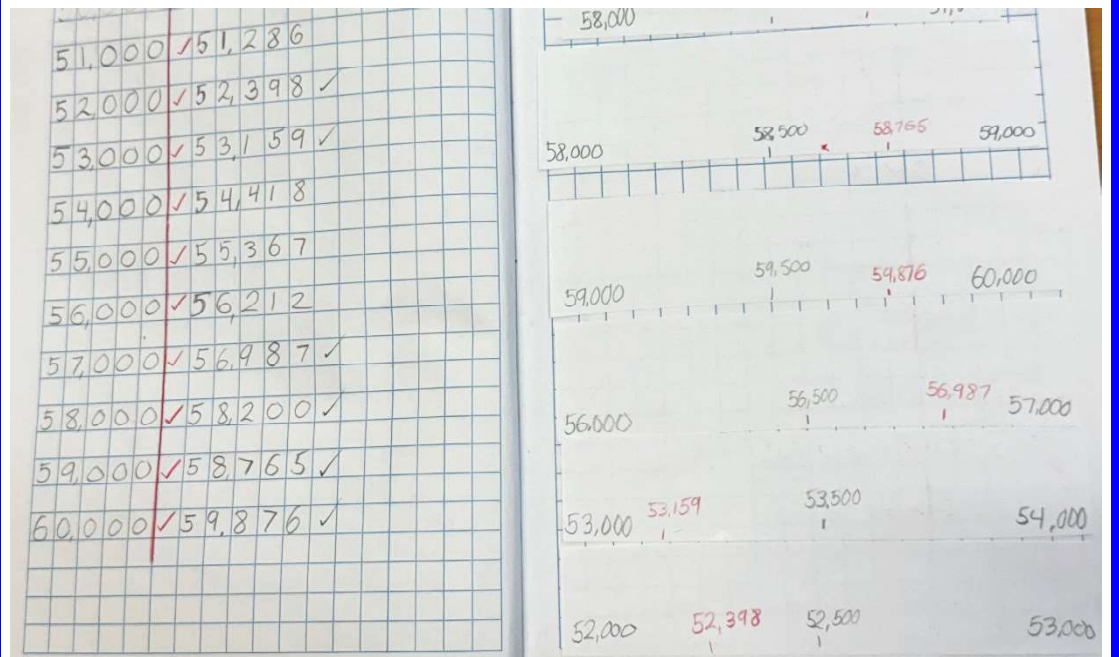 51,000 ✓ 51,286
52,000 ✓ 52,398 ✓
53,000 ✓ 53,159 ✓
54,000 ✓ 54,418
55,000 ✓ 55,367
56,000 ✓ 56,212
57,000 ✓ 56,987 ✓
58,000 ✓ 58,200 ✓
59,000 ✓ 58,765 ✓
60,000 ✓ 59,876 ✓
58,000
58,000 58,500 58,765 59,000
59,000 59,500 59,876 60,000
56,000 56,500 56,987 57,000
53,000 53,159 53,500 54,000
52,000 52,398 52,500 53,000